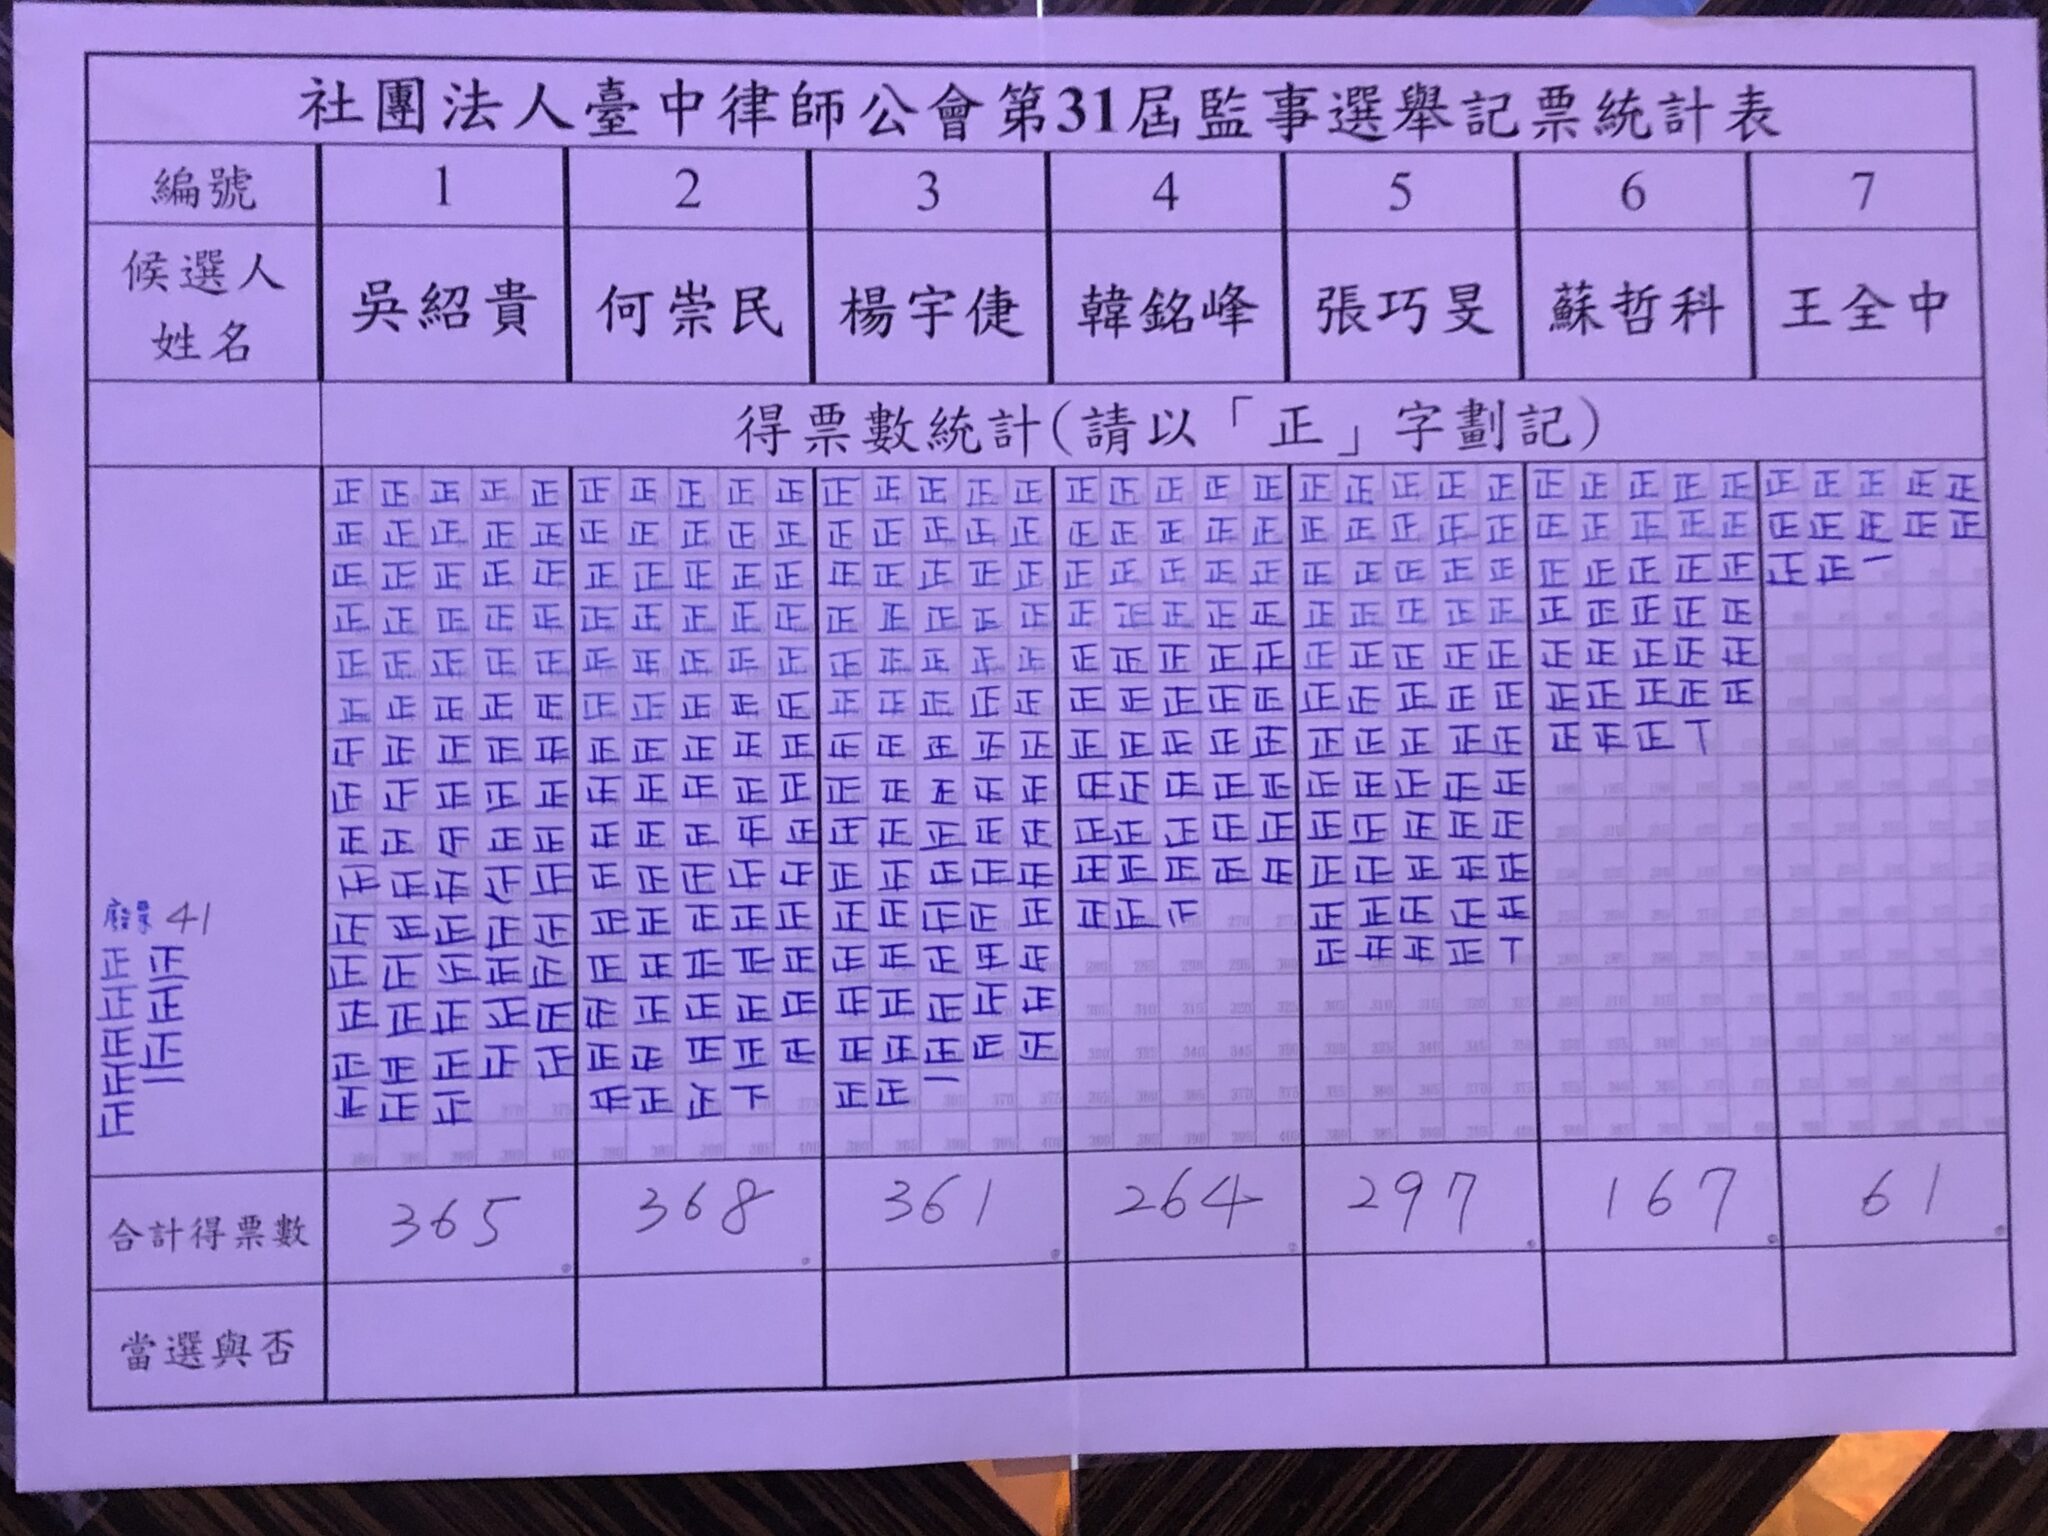 社團法人臺中律師公會第31屆監事選舉記票統計表
編號 1 2 3 4 5 6 7
候選人姓名 吳紹貴 何崇民 楊宇倢 韓銘峰 張巧旻 蘇哲科 王全中
得票數統計(請以「正」字劃記)
正正正正正 正正正正正 正正正正正 正正正正正 正正正正正 正正正正正 正正正正正
正正正正正 正正正正正 正正正正正 正正正正正 正正正正正 正正正正正 正正正正正
正正正正正 正正正正正 正正正正正 正正正正正 正正正正正 正正正正正 正正一
正正正正正 正正正正正 正正正正正 正正正正正 正正正正正 正正正正正
正正正正正 正正正正正 正正正正正 正正正正正 正正正正正 正正正正正
正正正正正 正正正正正 正正正正正 正正正正正 正正正正正 正正正正正
正正正正正 正正正正正 正正正正正 正正正正正 正正正正正 正正正丅
正正正正正 正正正正正 正正正正正 正正正正正 正正正正正
正正正正正 正正正正正 正正正正正 正正正正正 正正正正正
正正正正正 正正正正正 正正正正正 正正正正正 正正正正正
正正正正正 正正正正正 正正正正正 正正 正正正正正
正正正正正 正正正正正 正正正正正 正正正正丅
正正正正正 正正正正正 正正正正正
正正正正正 正正正正正 正正正正正
正正正 正正正下 正正一
廢票 41
正正
正正
正正
正一
正
合計得票數 365 368 361 264 297 167 61
當選與否